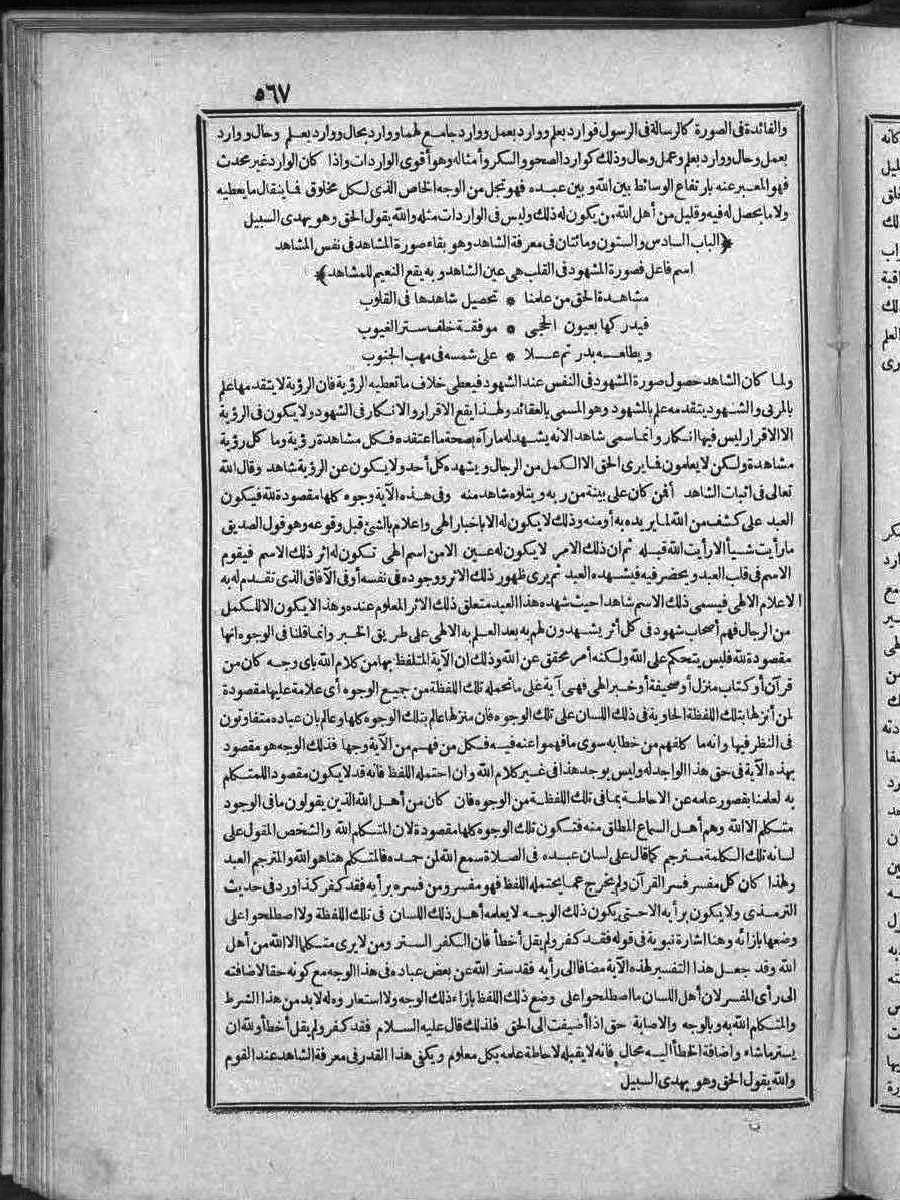 ٥٦٧
والفائدة فى الصورة كالرسالة فى الرسول فوارد بعلم ووارد بعمل ووارد جامع لهما ووارد بحال ووارد بعلم وحال ووارد
بعمل وحال ووارد بعلم وعمل وحال وذلك كوارد الصحو والسكر وأمثاله وهو أقوى الواردات واذا كان الوارد غير محدث
فهو المعبر عنه بارتفاع الوسائط بين الله وبين عبده فهو تجل من الوجه الخاص الذى لكل مخلوق فما ينقال ما يعطيه
ولا ما يحصل له فيه وقليل من أهل الله من يكون له ذلك وليس فى الواردات مثله والله يقول الحق وهو يهدى السبيل
﴿الباب السادس والستون ومائتان فى معرفة الشاهد وهو بقاء صورة المشاهد فى نفس المشاهد
اسم فاعل فصورة المشهود فى القلب هى عين الشاهد وبه يقع النعيم للمشاهد﴾
مشاهدة الحق من علمنا * تحصيل شاهدها فى القلوب
فيدركها بعيون الحجى * موفقة خلف ستر الغيوب
ويطلعه بدر تم علا * على شمسه فى مهب الجنوب
ولما كان الشاهد حصول صورة المشهود فى النفس عند الشهود فيعطى خلاف ما تعطيه الرؤية فان الرؤية لا يتقدمها علم
بالمرئى والشهود يتقدمه علم بالمشهود وهو المسمى بالعقائد ولهذا يقع الاقرار والانكار فى الشهود ولا يكون فى الرؤية
الا الاقرار ليس فيها انكار وانما سمى شاهدا لانه يشهد له ما رآه بصحة ما اعتقده فكل مشاهدة رؤية وما كل رؤية
مشاهدة ولكن لا يعلمون فما يرى الحق الا الكمل من الرجال ويشهده كل أحد ولا يكون عن الرؤية شاهد وقال الله
تعالى فى اثبات الشاهد أفمن كان على بينة من ربه ويتلوه شاهد منه وفى هذه الآية وجوه كلها مقصودة لله فيكون
العبد على كشف من الله لما يريده به أو منه وذلك لا يكون له الا باخبار الهى واعلام بالشئ قبل وقوعه وهو قول الصديق
ما رأيت شيأ الا رأيت الله قبله ثم ان ذلك الامر لا يكون له عين الا من اسم الهى تكون له اثر ذلك الاسم فيقوم
الاسم فى قلب العبد ويحضر فيه فيشهده العبد ثم يرى ظهور ذلك الاثر ووجوده فى نفسه أو فى الآفاق الذى تقدم له به
الاعلام الالهى فيسمى ذلك الاسم شاهدا حيث شهده هذا العبد متعلق ذلك الاثر المعلوم عنده وهذا لا يكون الا للكمل
من الرجال فهم أصحاب شهود فى كل أثر يشهدون لهم به بعد العلم به الالهى على طريق الخبر وانما قلنا فى الوجوه انها
مقصودة لله فليس بتحكم على الله ولكنه أمر محقق عن الله وذلك ان الآية المتلفظ بها من كلام الله باى وجه كان من
قرآن أو كتاب منزل أو صحيفة أو خبر الهى فهى آية على ما تحمله تلك اللفظة من جميع الوجوه أى علامة عليها مقصودة
لمن أنزلها بتلك اللفظة الحاوية فى ذلك اللسان على تلك الوجوه فان منزلها عالم بتلك الوجوه كلها وعالم بان عباده متفاوتون
فى النظر فيها وانه ما كلفهم من خطابه سوى ما فهموا عنه فيه فكل من فهم من الآية وجها فذلك الوجه هو مقصود
بهذه الآية فى حق هذا الواجد له وليس يوجد هذا فى غير كلام الله وان احتمله اللفظ فانه قد لا يكون مقصودا للمتكلم
به لعلمنا بقصور علمه عن الاحاطة بما فى تلك اللفظة من الوجوه فان كان من أهل الله الذين يقولون ما فى الوجود
متكلم الا الله وهم أهل السماع المطلق منه فتكون تلك الوجوه كلها مقصودة لان المتكلم الله والشخص المقول على
لسانه تلك الكلمة مترجم كما قال على لسان عبده فى الصلاة سمع الله لمن حمده فالمتكلم هنا هو الله والمترجم العبد
ولهذا كان كل مفسر فسر القرآن ولم يخرج عما يحتمله اللفظ فهو مفسر ومن فسره برأيه فقد كفر كذا ورد فى حديث
الترمذى ولا يكون برأيه الا حتى يكون ذلك الوجه لا يعلمه أهل ذلك اللسان فى تلك اللفظة ولا اصطلحوا على
وضعها بازائه وهنا اشارة نبوية فى قوله فقد كفر ولم يقل أخطأ فان الكفر الستر ومن لا يرى متكلما الا الله من أهل
الله وقد جعل هذا التفسير لهذه الآية مضافا الى رأيه فقد ستر الله عن بعض عباده فى هذا الوجه مع كونه حقا لاضافته
الى رأى المفسر لان أهل اللسان ما اصطلحوا على وضع ذلك اللفظ بازاء ذلك الوجه ولا استعاروه له لا بد من هذا الشرط
والمتكلم الله به وبالوجه والاصابة حق اذا أضيفت الى الحق فلذلك قال عليه السلام فقد كفر ولم يقل أخطأ ولله ان
يستر ما شاء واضافة الخطأ اليه محال فانه لا يقبله لاحاطة علمه بكل معلوم ويكفى هذا القدر فى معرفة الشاهد عند القوم
والله يقول الحق وهو يهدى السبيل